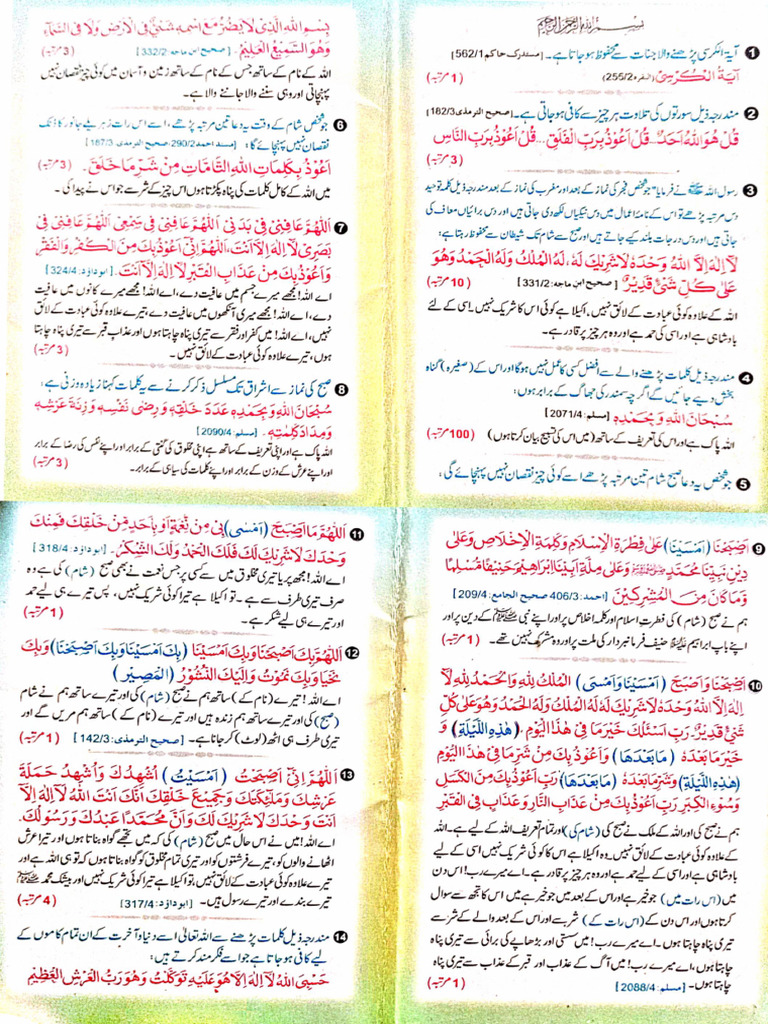 بِسْمِ اللهِ الرَّحْمٰنِ الرَّحِيْمِ
❶ آیۃ الکرسی پڑھنے والا جنات سے محفوظ ہوجاتا ہے۔ [مستدرک حاکم 562/1]
آيَةُ الْكُرْسِىْ (البقرہ 255/2) (1 مرتبہ)
❷ مندرجہ ذیل سورتوں کی تلاوت ہر چیز سے کافی ہوجاتی ہے۔ [صحیح الترمذی 182/3]
قُلْ هُوَ اللهُ اَحَدٌ... قُلْ اَعُوْذُ بِرَبِّ الْفَلَقِ... قُلْ اَعُوْذُ بِرَبِّ النَّاسِ
(3 مرتبہ)
❸ رسول اللہ ﷺ نے فرمایا "جو شخص فجر کی نماز کے بعد اور مغرب کی نماز کے بعد مندرجہ ذیل کلمہ توحید
دس مرتبہ پڑھے تو اس کے نامۂ اعمال میں دس نیکیاں لکھ دی جاتی ہیں اور دس برائیاں معاف کی
جاتی ہیں اور دس درجات بلند کیے جاتے ہیں اور صبح سے شام تک شیطان سے محفوظ رہتا ہے:
لَا اِلٰهَ اِلَّا اللهُ وَحْدَهٗ لَا شَرِيْكَ لَهٗ، لَهُ الْمُلْكُ وَلَهُ الْحَمْدُ وَهُوَ
عَلٰى كُلِّ شَىْءٍ قَدِيْرٌ [صحیح ابن ماجہ: 331/2] (10 مرتبہ)
اللہ کے علاوہ کوئی عبادت کے لائق نہیں۔ اکیلا ہے کوئی اس کا شریک نہیں۔ اسی کے لئے
بادشاہی ہے اور اسی کی حمد ہے اور وہ ہر چیز پر قادر ہے۔
❹ مندرجہ ذیل کلمات پڑھنے والے سے افضل کسی کا عمل نہیں ہوگا اور اس کے (صغیرہ) گناہ
بخش دیے جائیں گے اگرچہ سمندر کی جھاگ کے برابر ہوں:
سُبْحَانَ اللهِ وَبِحَمْدِهٖ [مسلم: 2071/4]
اللہ پاک ہے اور اس کی تعریف کے ساتھ (میں اس کی تسبیح بیان کرتا ہوں) (100 مرتبہ)
❺ جو شخص یہ دعا صبح شام تین مرتبہ پڑھے اسے کوئی چیز نقصان نہیں پہنچائے گی،
بِسْمِ اللهِ الَّذِىْ لَا يَضُرُّ مَعَ اسْمِهٖ شَىْءٌ فِى الْاَرْضِ وَلَا فِى السَّمَآءِ
وَهُوَ السَّمِيْعُ الْعَلِيْمُ۔ [صحیح ابن ماجہ 332/2] (3 مرتبہ)
اللہ کے نام کے ساتھ جس کے نام کے ساتھ زمین و آسمان میں کوئی چیز نقصان نہیں
پہنچاتی اور وہی سننے والا جاننے والا ہے۔
❻ جو شخص شام کے وقت یہ دعا تین مرتبہ پڑھے، اسے اس رات زہریلے جانور کا ڈنک
نقصان نہیں پہنچائے گا: [مسند احمد 290/2 صحیح الترمذی: 187/3]
اَعُوْذُ بِكَلِمَاتِ اللهِ التَّامَّاتِ مِنْ شَرِّ مَا خَلَقَ۔ (3 مرتبہ)
میں اللہ کے کامل کلمات کی پناہ پکڑتا ہوں اس چیز کے شر سے جو اس نے پیدا کی۔
❼ اَللّٰهُمَّ عَافِنِىْ فِىْ بَدَنِىْ اَللّٰهُمَّ عَافِنِىْ فِىْ سَمْعِىْ اَللّٰهُمَّ عَافِنِىْ فِىْ
بَصَرِىْ لَا اِلٰهَ اِلَّا اَنْتَ، اَللّٰهُمَّ اِنِّىْ اَعُوْذُ بِكَ مِنَ الْكُفْرِ وَالْفَقْرِ
وَاَعُوْذُ بِكَ مِنْ عَذَابِ الْقَبْرِ لَا اِلٰهَ اِلَّا اَنْتَ۔ [ابوداؤد: 324/4]
اے اللہ! مجھے میرے جسم میں عافیت دے، اے اللہ! مجھے میرے کانوں میں عافیت
دے، اے اللہ! مجھے میری آنکھوں میں عافیت دے، تیرے علاوہ کوئی عبادت کے لائق
نہیں، اے اللہ! میں کفر اور فقر سے تیری پناہ چاہتا ہوں اور عذاب قبر سے تیری پناہ چاہتا
ہوں، تیرے علاوہ کوئی عبادت کے لائق نہیں۔ (3 مرتبہ)
❽ صبح کی نماز سے اشراق تک مسلسل ذکر کرنے سے یہ کلمات کہنا زیادہ وزنی ہے:
سُبْحَانَ اللهِ وَبِحَمْدِهٖ عَدَدَ خَلْقِهٖ وَرِضٰى نَفْسِهٖ وَزِنَةَ عَرْشِهٖ
وَمِدَادَ كَلِمٰتِهٖ۔ [مسلم: 2090/4]
اللہ پاک ہے اور اپنی تعریف کے ساتھ ہے اپنی مخلوق کی گنتی کے برابر اور اپنے نفس کی رضا کے برابر
اور اپنے عرش کے وزن کے برابر اور اپنے کلمات کی سیاہی کے برابر۔ (3 مرتبہ)
❾ اَصْبَحْنَا (اَمْسَيْنَا) عَلٰى فِطْرَةِ الْاِسْلَامِ وَكَلِمَةِ الْاِخْلَاصِ وَعَلٰى
دِيْنِ نَبِيِّنَا مُحَمَّدٍ ﷺ وَعَلٰى مِلَّةِ اَبِيْنَا اِبْرَاهِيْمَ حَنِيْفًا مُسْلِمًا
وَمَا كَانَ مِنَ الْمُشْرِكِيْنَ [احمد: 406/3 صحیح الجامع: 209/4]
ہم نے صبح (شام) کی فطرت اسلام اور کلمہ اخلاص پر اور اپنے نبی ﷺ کے دین پر اور
اپنے باپ ابراہیم ؑ حنیف فرمانبردار کی ملت پر اور وہ مشرک نہیں تھے۔ (1 مرتبہ)
❿ اَصْبَحْنَا وَاَصْبَحَ (اَمْسَيْنَا وَاَمْسٰى) الْمُلْكُ لِلّٰهِ وَالْحَمْدُ لِلّٰهِ لَا
اِلٰهَ اِلَّا اللهُ وَحْدَهٗ لَا شَرِيْكَ لَهٗ لَهُ الْمُلْكُ وَلَهُ الْحَمْدُ وَهُوَ عَلٰى كُلِّ
شَىْءٍ قَدِيْرٌ، رَبِّ اَسْئَلُكَ خَيْرَ مَا فِىْ هٰذَا الْيَوْمِ، (هٰذِهِ اللَّيْلَةِ) وَ
خَيْرَ مَا بَعْدَهٗ (مَا بَعْدَهَا) وَاَعُوْذُ بِكَ مِنْ شَرِّ مَا فِىْ هٰذَا الْيَوْمِ
(هٰذِهِ اللَّيْلَةِ) وَشَرِّ مَا بَعْدَهٗ (مَا بَعْدَهَا) رَبِّ اَعُوْذُ بِكَ مِنَ الْكَسَلِ
وَسُوْءِ الْكِبَرِ رَبِّ اَعُوْذُ بِكَ مِنْ عَذَابِ النَّارِ وَعَذَابٍ فِى الْقَبْرِ
ہم نے صبح کی اور اللہ کے ملک نے صبح کی (شام کی) اور تمام تعریف اللہ کے لیے ہے۔ اللہ
کے علاوہ کوئی عبادت کے لائق نہیں۔ وہ اکیلا ہے اس کا کوئی شریک نہیں اسی کے لیے
بادشاہی ہے اور اسی کے لیے حمد ہے اور وہ ہر چیز پر قادر ہے۔ اے میرے رب! اس دن
میں (اس رات میں) جو خیر ہے اور اس کے بعد میں جو خیر ہے میں اس کا تجھ سے سوال
کرتا ہوں اور اس دن کے (اس رات کے) شر سے اور اس کے بعد والے کے شر سے
تیری پناہ چاہتا ہوں۔ اے میرے رب! میں سستی اور بڑھاپے کی برائی سے تیری پناہ
چاہتا ہوں، اے میرے رب! میں آگ کے عذاب اور قبر کے عذاب سے تیری پناہ
چاہتا ہوں۔ [مسلم: 2088/4] (1 مرتبہ)
⓫ اَللّٰهُمَّ مَا اَصْبَحَ (اَمْسٰى) بِىْ مِنْ نِّعْمَةٍ اَوْ بِاَحَدٍ مِّنْ خَلْقِكَ فَمِنْكَ
وَحْدَكَ لَا شَرِيْكَ لَكَ فَلَكَ الْحَمْدُ وَلَكَ الشُّكْرُ۔ [ابوداؤد: 318/4]
اے اللہ! مجھ پر یا تیری مخلوق میں سے کسی پر جس نعمت نے بھی صبح (شام) کی ہے وہ
صرف تیری طرف سے ہے۔ تو اکیلا ہے تیرا کوئی شریک نہیں، پس تیرے ہی لیے حمد
اور تیرے ہی لیے شکر ہے۔ (1 مرتبہ)
⓬ اَللّٰهُمَّ بِكَ اَصْبَحْنَا وَبِكَ اَمْسَيْنَا (بِكَ اَمْسَيْنَا وَبِكَ اَصْبَحْنَا) وَبِكَ
نَحْيَا وَبِكَ نَمُوْتُ وَاِلَيْكَ النُّشُوْرُ (الْمَصِيْرُ)
اے اللہ! تیرے (نام کے) ساتھ ہم نے صبح (شام) کی اور تیرے ساتھ ہم نے شام
(صبح) کی اور تیرے ساتھ ہم زندہ ہیں اور تیرے (نام کے) ساتھ ہم مریں گے اور
تیری طرف ہی اٹھ (لوٹ) کر جانا ہے۔ [صحیح الترمذی: 142/3] (1 مرتبہ)
⓭ اَللّٰهُمَّ اِنِّىْ اَصْبَحْتُ (اَمْسَيْتُ) اُشْهِدُكَ وَاُشْهِدُ حَمَلَةَ
عَرْشِكَ وَمَلٰئِكَتَكَ وَجَمِيْعَ خَلْقِكَ اَنَّكَ اَنْتَ اللهُ لَا اِلٰهَ اِلَّا
اَنْتَ وَحْدَكَ لَا شَرِيْكَ لَكَ وَاَنَّ مُحَمَّدًا عَبْدُكَ وَرَسُوْلُكَ۔
اے اللہ! میں نے اس حال میں صبح (شام) کی کہ میں تجھے گواہ بناتا ہوں اور تیرا عرش
اٹھانے والوں کو، تیرے فرشتوں کو اور تیری تمام مخلوق کو گواہ بناتا ہوں کہ تو ہی اللہ ہے اور
تیرے علاوہ کوئی عبادت کے لائق نہیں، تو اکیلا ہے تیرا کوئی شریک نہیں اور بیشک محمد ﷺ
تیرے بندے اور تیرے رسول ہیں۔ [ابوداؤد: 317/4] (4 مرتبہ)
⓮ مندرجہ ذیل کلمات پڑھنے سے اللہ تعالیٰ اسے دنیا و آخرت کے ان تمام کاموں کے
لیے کافی ہوجاتا ہے جو اسے فکر مند کرتے ہیں:
حَسْبِىَ اللهُ لَا اِلٰهَ اِلَّا هُوَ عَلَيْهِ تَوَكَّلْتُ وَهُوَ رَبُّ الْعَرْشِ الْعَظِيْمِ